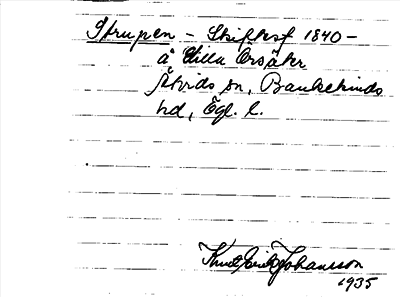 Strupen - Skifteskf 1840 -
å Lilla Orsäter
Åtvids sn, Bankekinds
hd, Ögl. l.
Knut Erik Johansson
1935